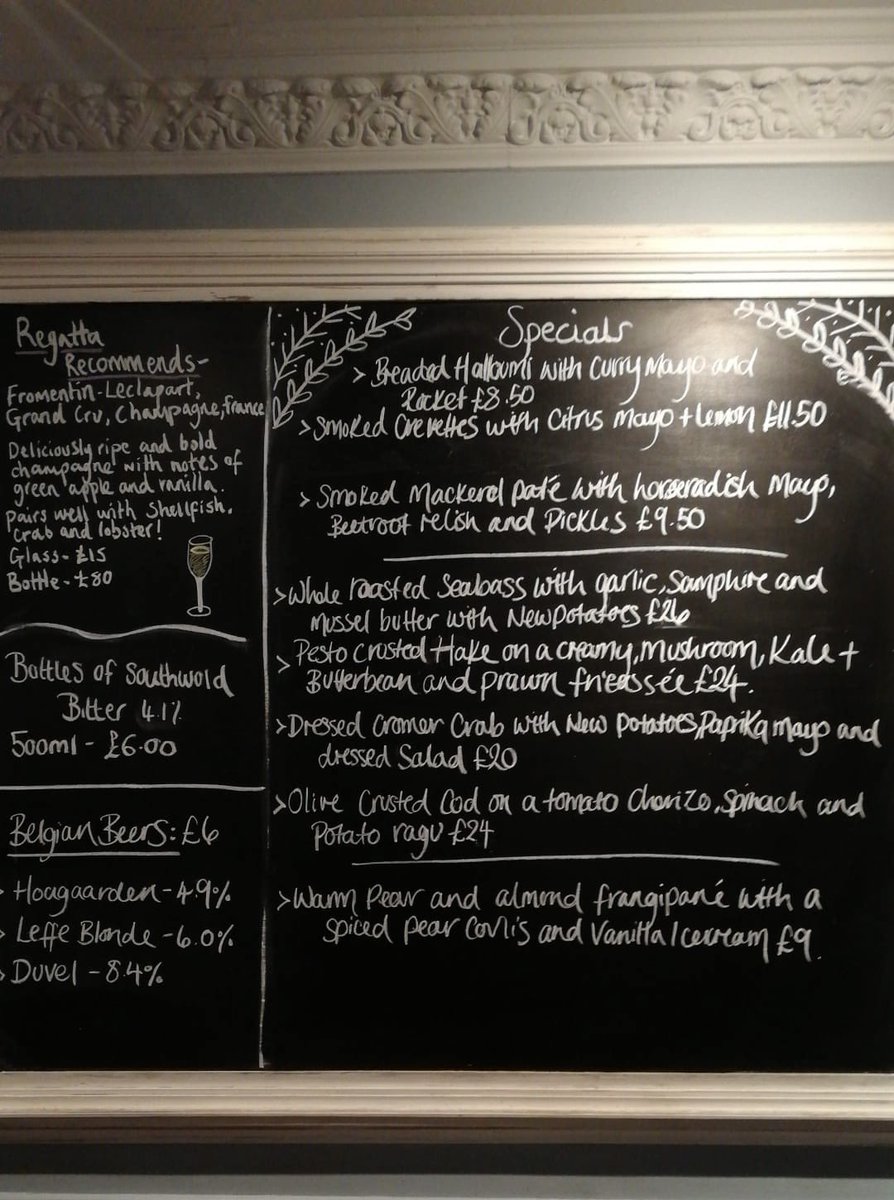 Regatta
Recommends-
Fromentin-Leclapart,
Grand Cru, Champagne, France
Deliciously ripe and bold
champagne with notes of
green apple and vanilla.
Pairs well with Shellfish,
crab and lobster!
Glass - £15
Bottle - £80
Bottles of Southwold
Bitter 4.1%
500ml - £6.00
Belgian Beers: £6
> Hoagaarden - 4.9%
> Leffe Blonde - 6.0%
> Duvel - 8.4%
Specials
> Breaded Halloumi with Curry Mayo and
Rocket £8.50
> Smoked Crevettes with Citrus Mayo + Lemon £11.50
> Smoked Mackerel paté with horseradish Mayo,
Beetroot relish and Pickles £9.50
> Whole roasted Seabass with garlic, Samphire and
mussel butter with New Potatoes £26
> Pesto crusted Hake on a creamy, Mushroom, Kale +
Butterbean and prawn fricassée £24.
> Dressed Cromer Crab with New potatoes, Paprika mayo and
dressed Salad £20
> Olive Crusted Cod on a tomato Chorizo, spinach and
Potato ragu £24
> Warm Pear and almond frangipané with a
spiced pear Coulis and Vanilla Icecream £9.